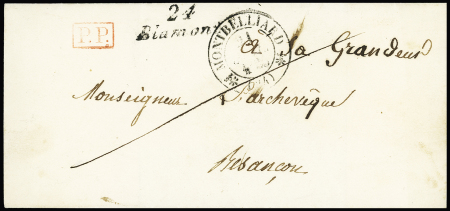 24
Blamont
P.P.
MONTBELLIARD
(24)
A Sa Grandeur
Monseigneur L'archevêque
Besançon